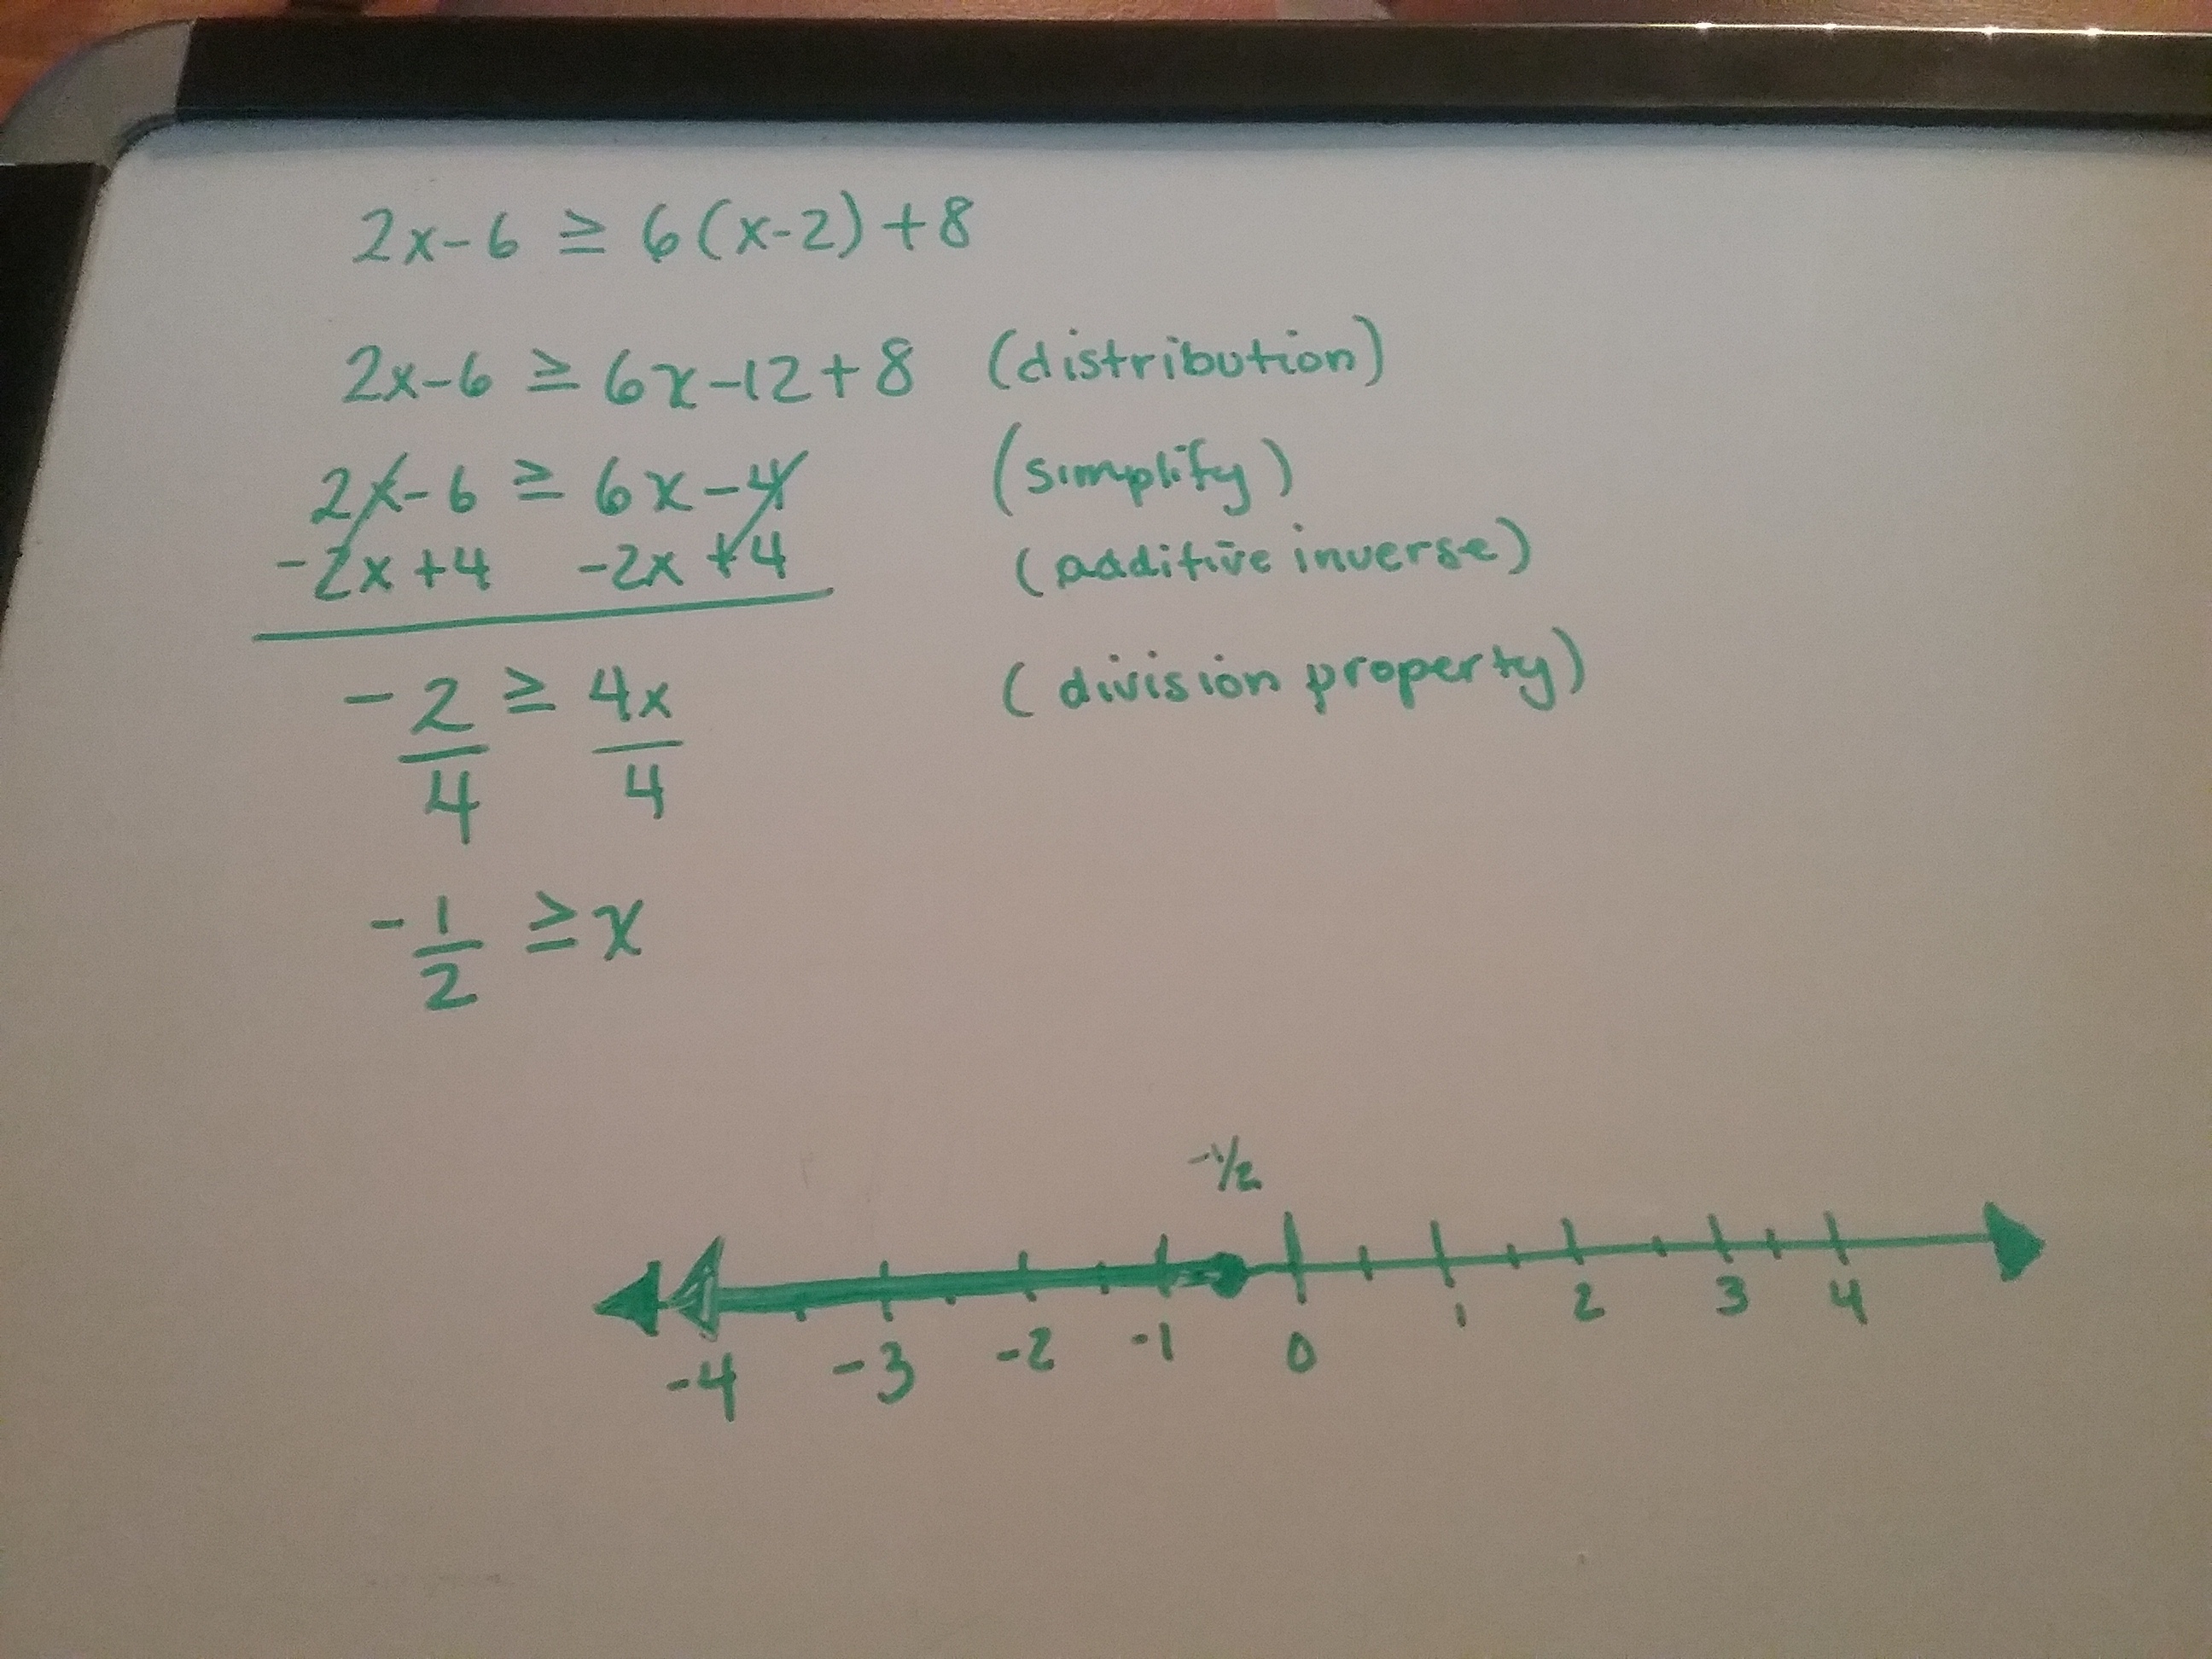 2x-6 ≥ 6(x-2)+8
2x-6 ≥ 6x-12+8 (distribution)
2x-6 ≥ 6x-4 (simplify)
-2x+4 -2x+4 (additive inverse)
-2 ≥ 4x (division property)
4 4
-1/2 ≥ x
-1/2
-4 -3 -2 -1 0 1 2 3 4